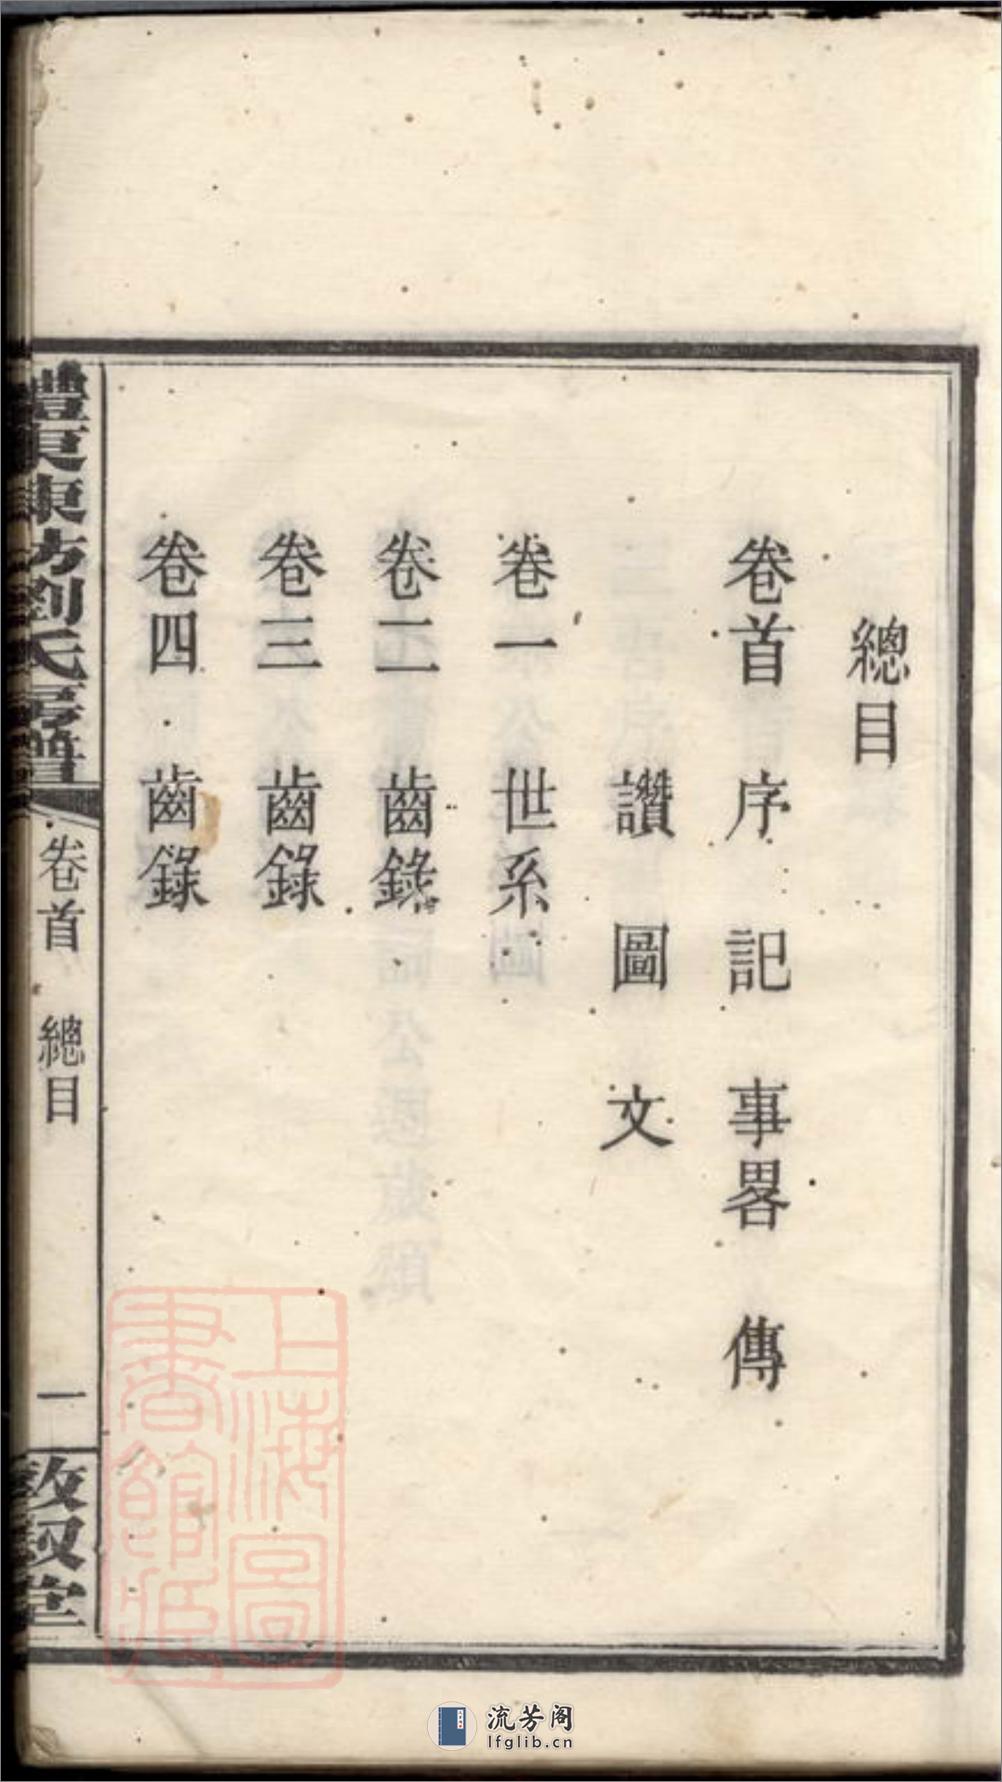 總目
卷首 序 記 事畧 傳
讚 圖 文
卷一 世系
卷二 齒錄
卷三 齒錄
卷四 齒錄
東 劉氏 譜
卷首 總目
一
堂
上海圖
書館藏
流芳阁
lfglib.cn